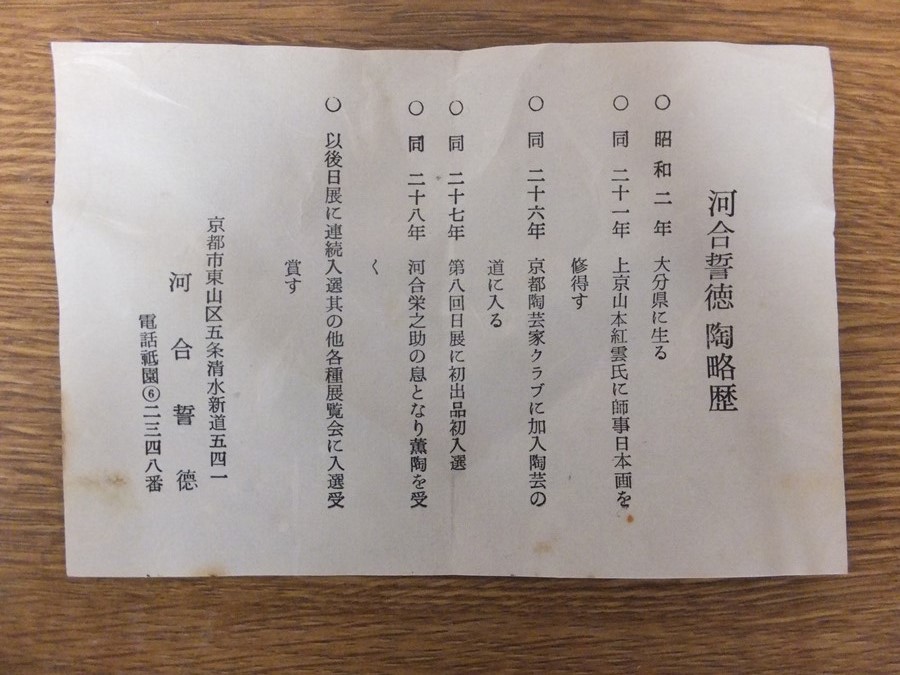 河合誓徳 陶略歴
○ 昭和二年 大分県に生る
○ 同 二十一年 上京山本紅雲氏に師事日本画を
修得す
○ 同 二十六年 京都陶芸家クラブに加入陶芸の
道に入る
○ 同 二十七年 第八回日展に初出品初入選
○ 同 二十八年 河合栄之助の息となり薫陶を受
く
○ 以後日展に連続入選其の他各種展覧会に入選受
賞す
京都市東山区五条清水新道五四一
河合誓徳
電話祗園⑥二三四八番